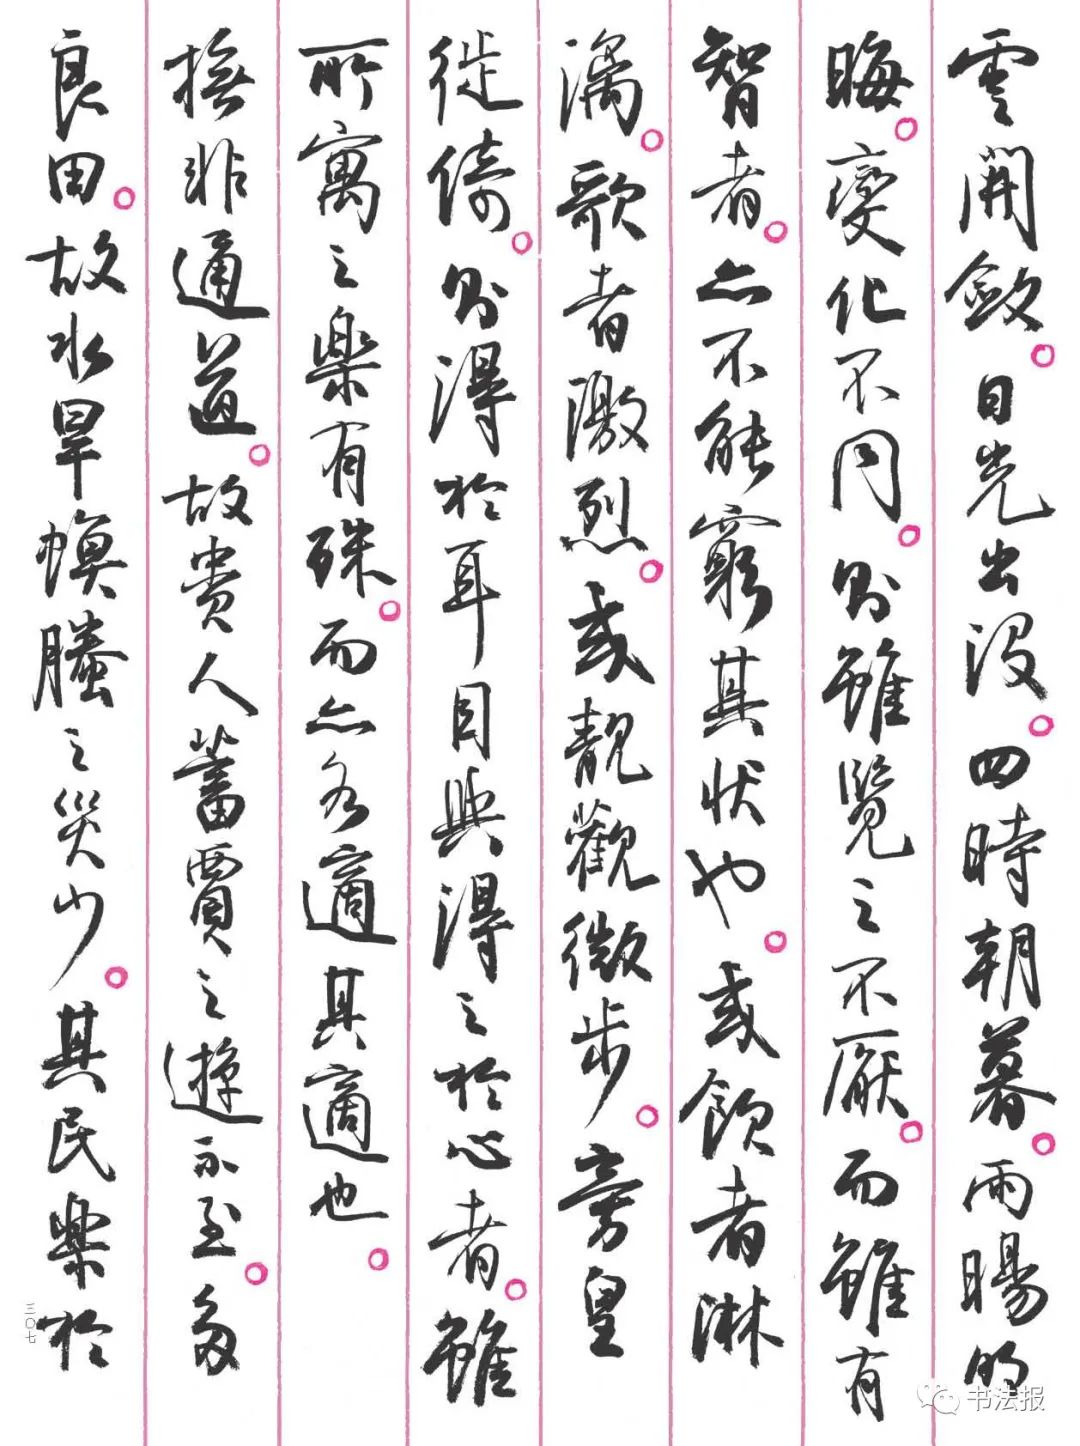 雲開斂。日光出沒。四時朝暮。雨暘明
晦。變化不同。則雖覽之不厭。而雖有
智者。亦不能窮其狀也。或飲者淋
漓。歌者激烈。或靚觀微步。旁皇
徙倚。則得於耳目與得之於心者。雖
所寓之樂有殊。而亦各適其適也。
撫非通道。故貴人蓄賈之遊不至。多
良田。故水旱螟螣之災少。其民樂於
三〇七
书法报